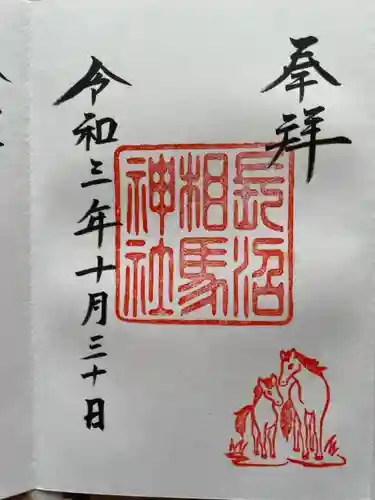 奉祥
長沼
相馬
神社
令和三年十月三十日